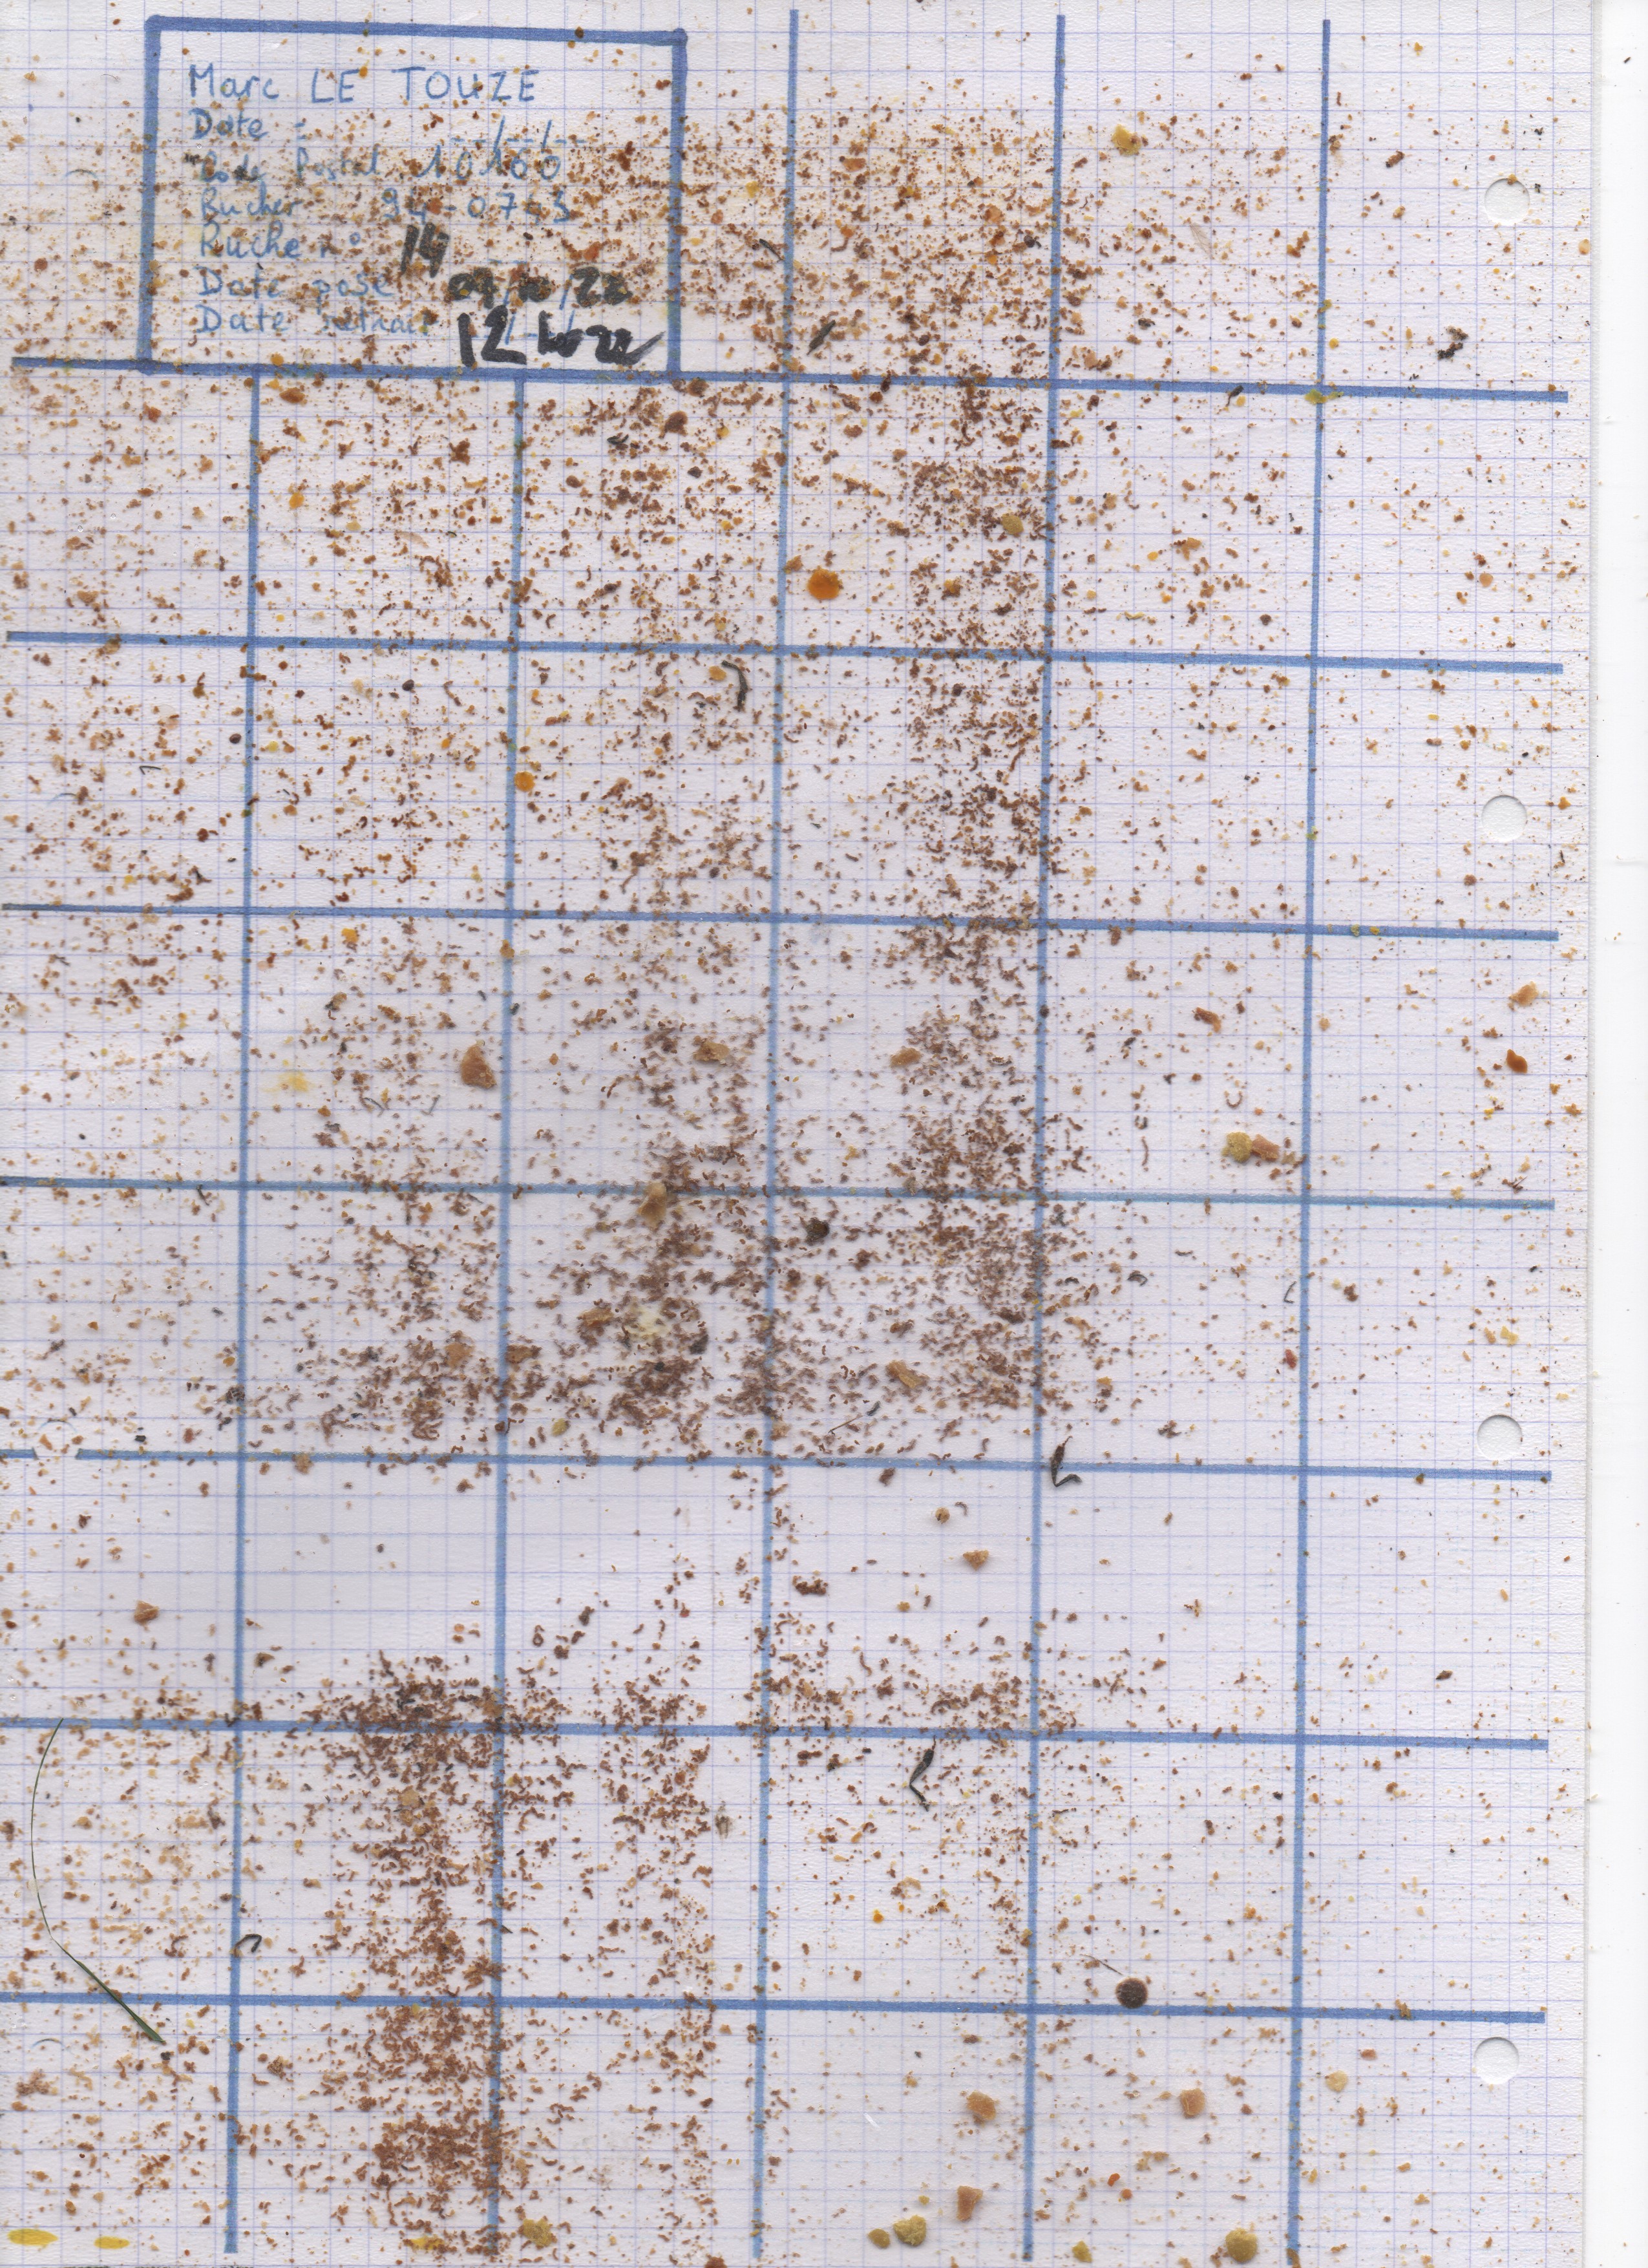 Marc LE TOUZE
Date : __/__/__
Code Postal 10100
Rucher 94-07-3
Ruche n° 14
Date pose /10/22
Date retrait 12 10 22